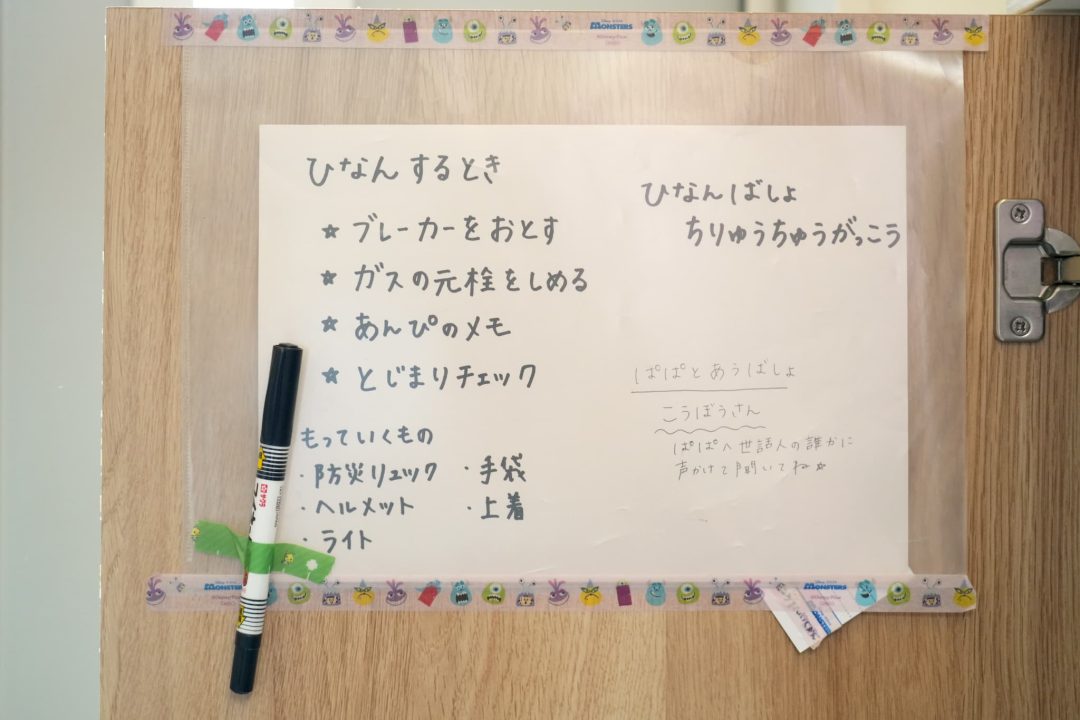 MONSTERS
ひなんするとき
★ ブレーカーをおとす
★ ガスの元栓をしめる
★ あんぴのメモ
★ とじまりチェック
もっていくもの
・防災リュック ・手袋
・ヘルメット ・上着
・ライト
ひなんばしょ
ちりゅうちゅうがっこう
ぱぱとあうばしょ
こうぼうさん
ぱぱへ世話人の誰かに
声かけて聞いてね☆
MONSTERS
MONSTERS